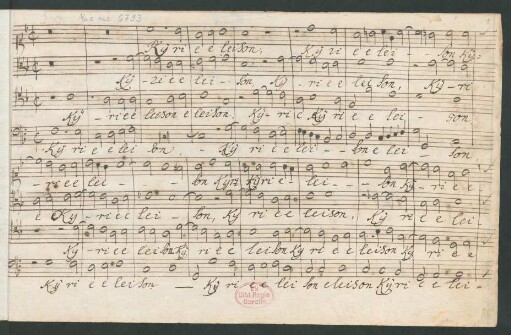 Mus. ms. 5793
Kÿ ri e e leison, Kÿ ri e e lei - son Kÿ:
Kÿ - ri e e lei - son, Kÿ - ri e e leison, Kÿ - ri
Kÿ - ri e e leison e leison, Kÿ - ri e Kÿ ri e e lei - son
Kÿ ri e e lei son - Kÿ ri e e lei - son e lei - son
- ri e e lei - son Kÿri Kÿri e - lei - son Kÿ - ri e e
e Kÿ - ri e e lei - son, Kÿ ri e e leison, Kÿ ri e e lei -
Kÿ - ri e e leison Kÿ ri e e leison Kÿ ri e e leison Kÿ ri e e
Kÿ ri e e leison - Kÿ ri e e lei son e leison Kÿri e e lei -
Ex
Bibl. Regia
Berolin.